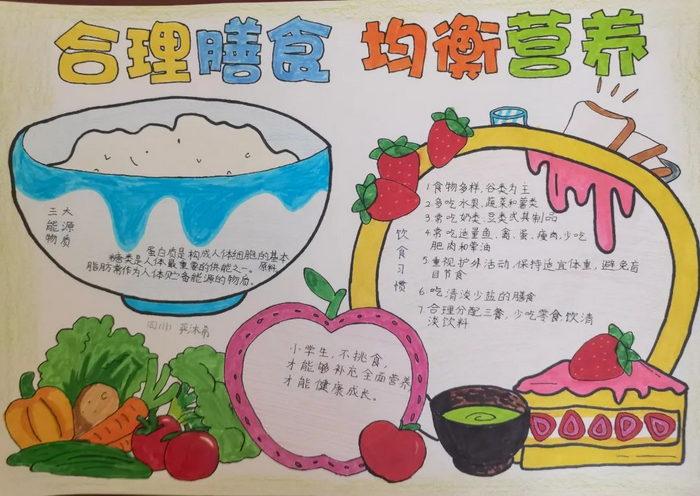 合理膳食 均衡营养
三大
能源
物质
蛋白质是构成人体细胞的基本
原料
糖类是人体最重要的供能之一。
脂肪常作为人体贮备能源的物质。
饮食习惯
1 食物多样,谷类为主
2 多吃水果,蔬菜和薯类
3.常吃奶类、豆类或其制品
4.常吃适量鱼、禽、蛋、瘦肉,少吃
肥肉和荤油
5.重视护外活动,保持适宜体重,避免盲
目节食
6.吃清淡少盐的膳食
7.合理分配三餐,少吃零食,饮清
淡饮料
小学生,不挑食,
才能够补充全面营养
才能健康成长。